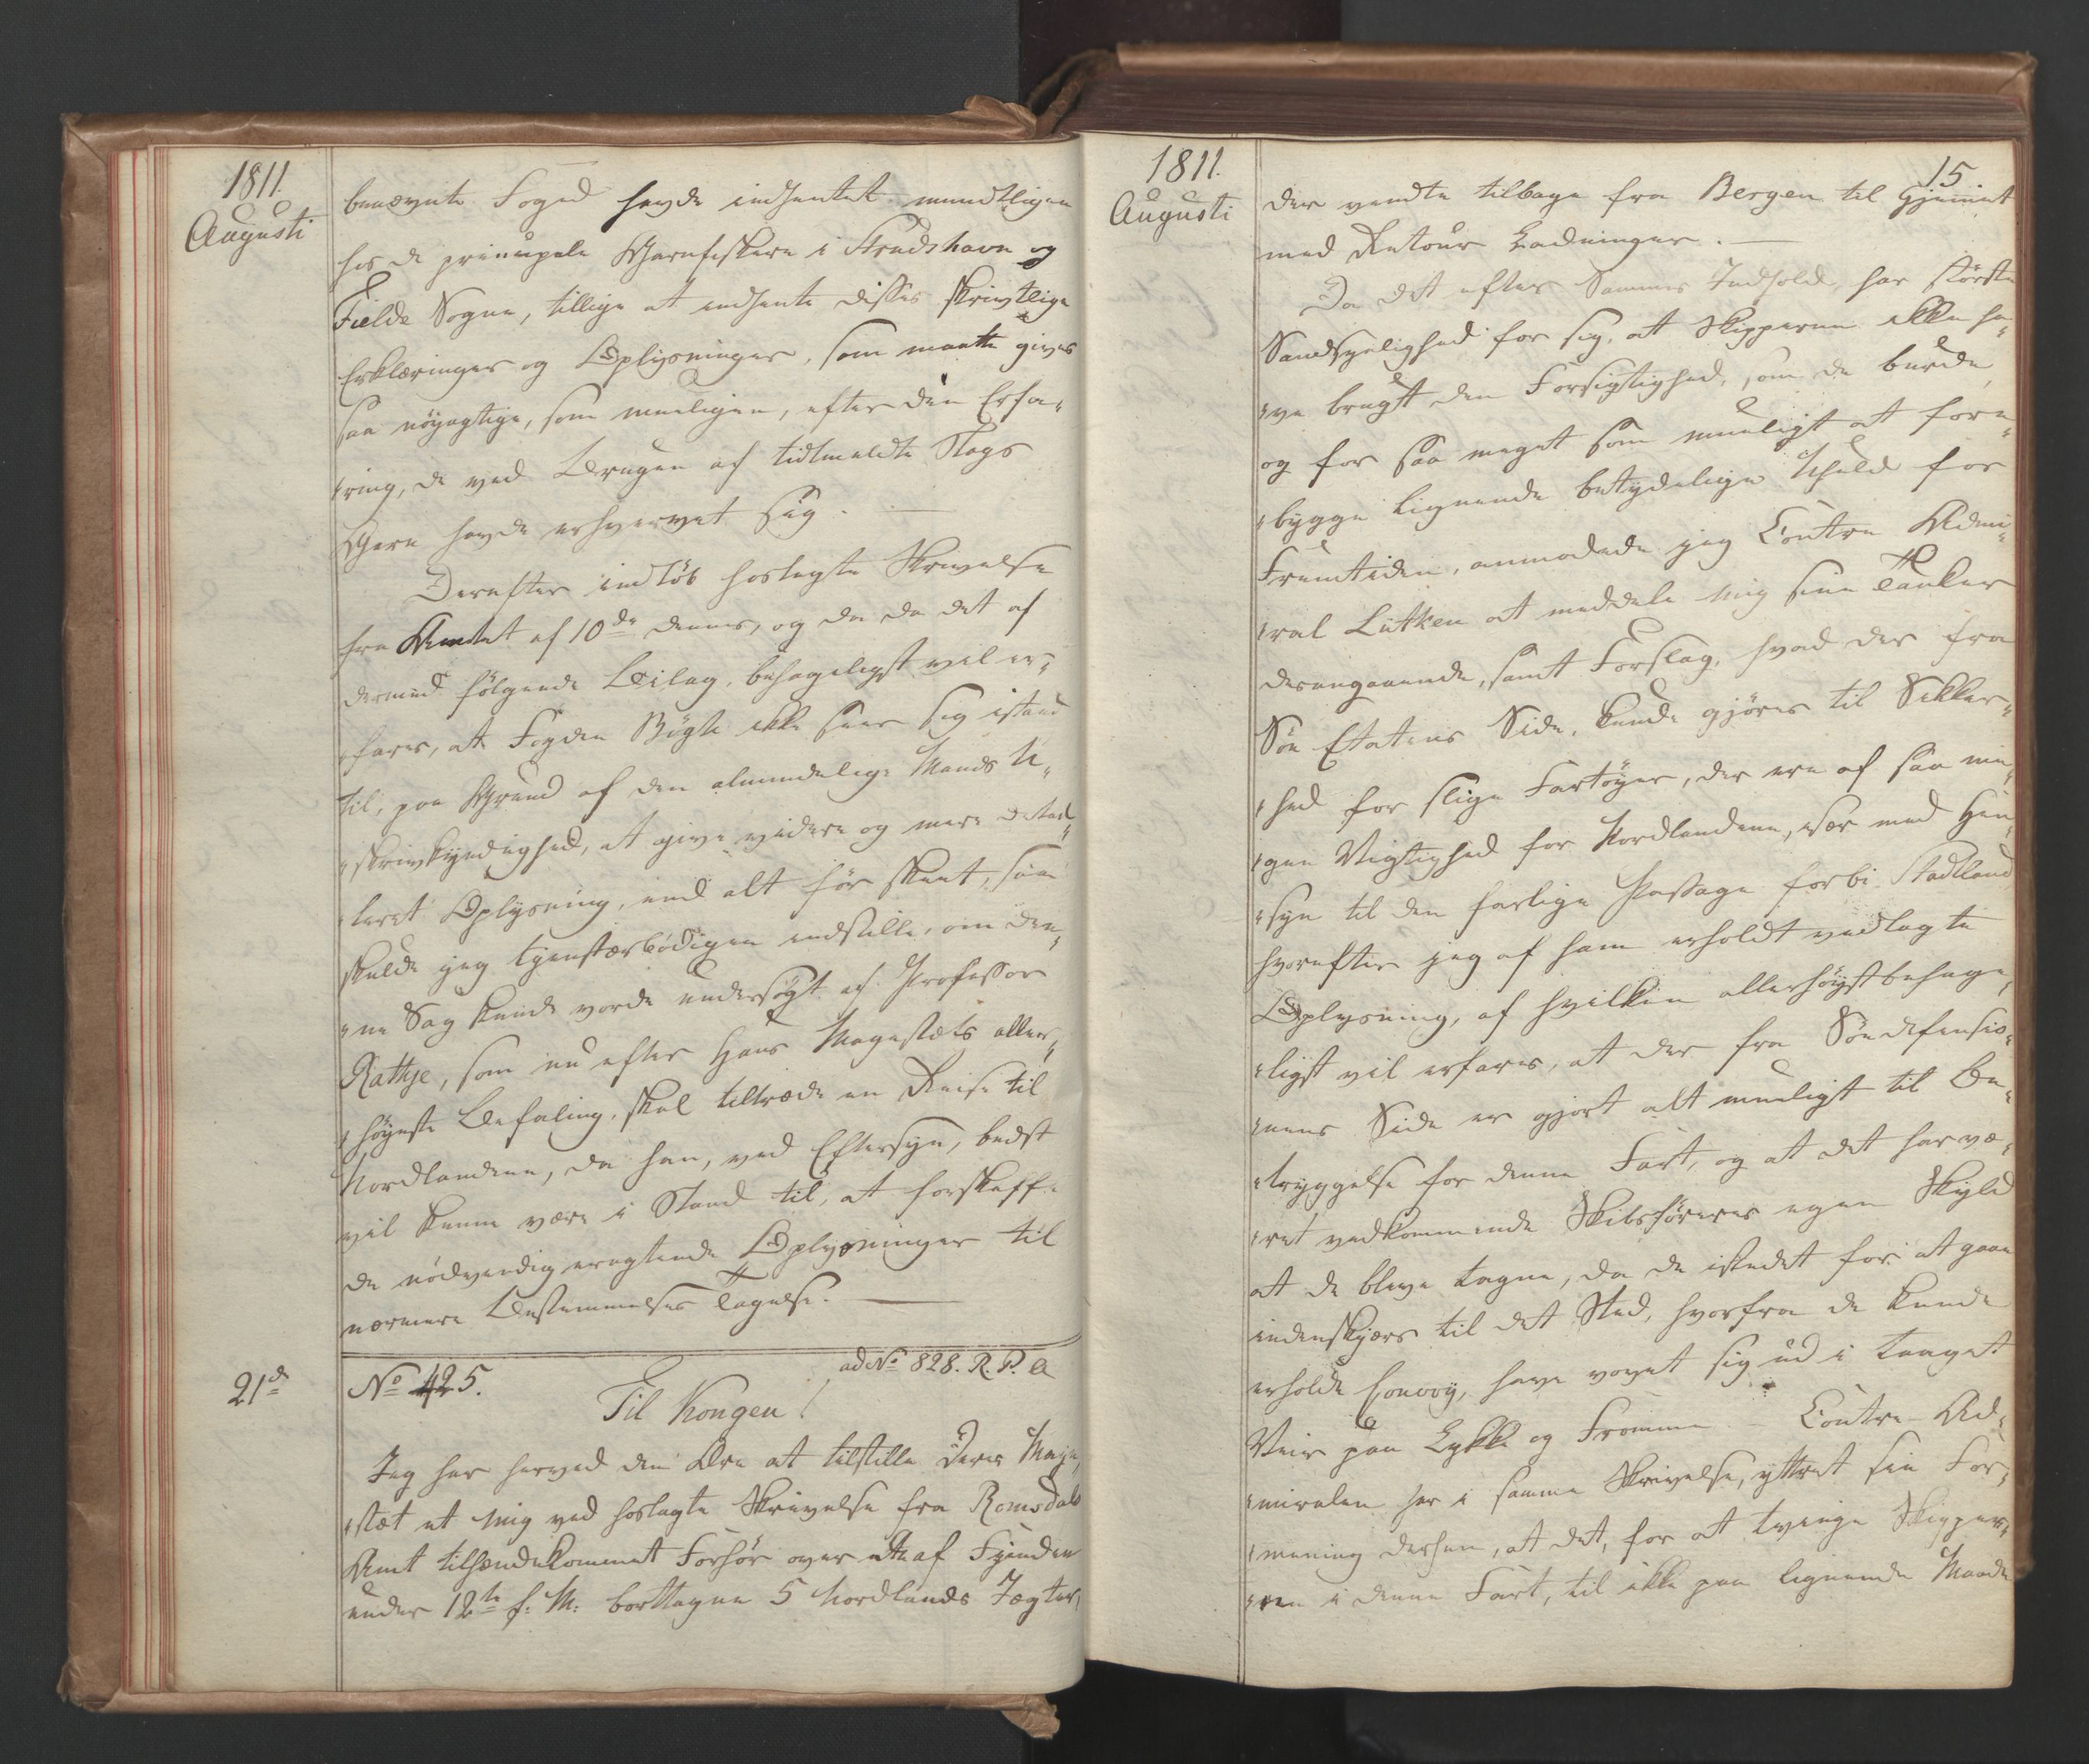 1811.
Augusti
benævnte Foged havde indhentet mundtligen
hos de principale Garnfiskere i Strudshavn og
Fielde Sogne, tillige at indhente disses skrivtlige
Erklæringer og Oplysninger, som maatte gives
saa nöyagtige, som mueligen, efter den Erfa„
„ring, de ved Brugen af tidtmeldte Slags
Garn havde erhvervet sig. —
Derefter indlöb hoslagte Skrivelse
fra Amtet af 10de dennes, og da da det af
dermed fölgende Bilag, behageligst vil er„
„fares, at Fogden Bögh ikke seer sig istand
til, paa Grund af den almindelige Mands U„
„skrivkyndighed, at give videre og mere detail„
„leret Oplysning, end alt för skeet, saa
skulde jeg tjenstærbödigen indstille, om den„
„ne Sag kunde vorde undersögt af Professor
Rathje, som nu efter Hans Majestæts aller„
„höyeste Befaling, skal tiltræde en Reise til
Nordlandene, da han, ved Eftersyn, bedst
vil kunne være i Stand til, at forskaffe
de nödvendig eragtende Oplysninger til
nærmere Bestemmelses Tagelse. —
21de
No 425.
ad No 828. R. P. a
Til Kongen!
Jeg har herved den Ære at tilstille Deres Maje„
„stæt et mig ved hoslagte Skrivelse fra Romsdals
Amt tilhændekommet Forhör over de af Fienden
under 12te f: M: borttagne 5 Nordlands Jægter,
1811.
Augusti
15
der vendte tilbage fra Bergen til Hjemmet
med Retour Ladninger. —
Da det efter Sammes Indhold, har störste
Sandsynlighed for sig, at Skipperne ikke ha„
„ve brugt den Forsigtighed, som de burde,
og for saa meget som mueligt at fore„
„bygge lignende betydelige Uheld for
Fremtiden, anmodede jeg Contre Admi„
„ral Lütken at meddele mig sine Tanker
desangaaende, samt Forslag, hvad der fra
Söe Etatens Side, kunde gjöres til Sikker„
„hed for slige Fartöyer, der ere af saa me„
„gen Vigtighed for Nordlandene, især med Hen„
„syn til den farlige Passage forbi Stadtland
hvorefter jeg af ham erholdt vedlagte
Oplysning, af hvilken allerhöystbehage„
„ligst vil erfares, at der fra Söedefensio„
„nens Side er gjort alt mueligt til Be„
„tryggelse for denne Fart, og at det har væ„
„ret vedkommende Skibsföreres egen Skyld
at de bleve tagne, da de istedet for at gaae
indenskjærs til det Sted, hvorfra de kunde
erholde Convoy, have vovet sig ud i taaget
Veir paa Lykke og Fromme – Contre-Ad„
„miralen har i samme Skrivelse, yttret sin For„
„mening derhen, at det, for at tvinge Skipper„
„ne i denne Fart, til ikke paa lignende Maade